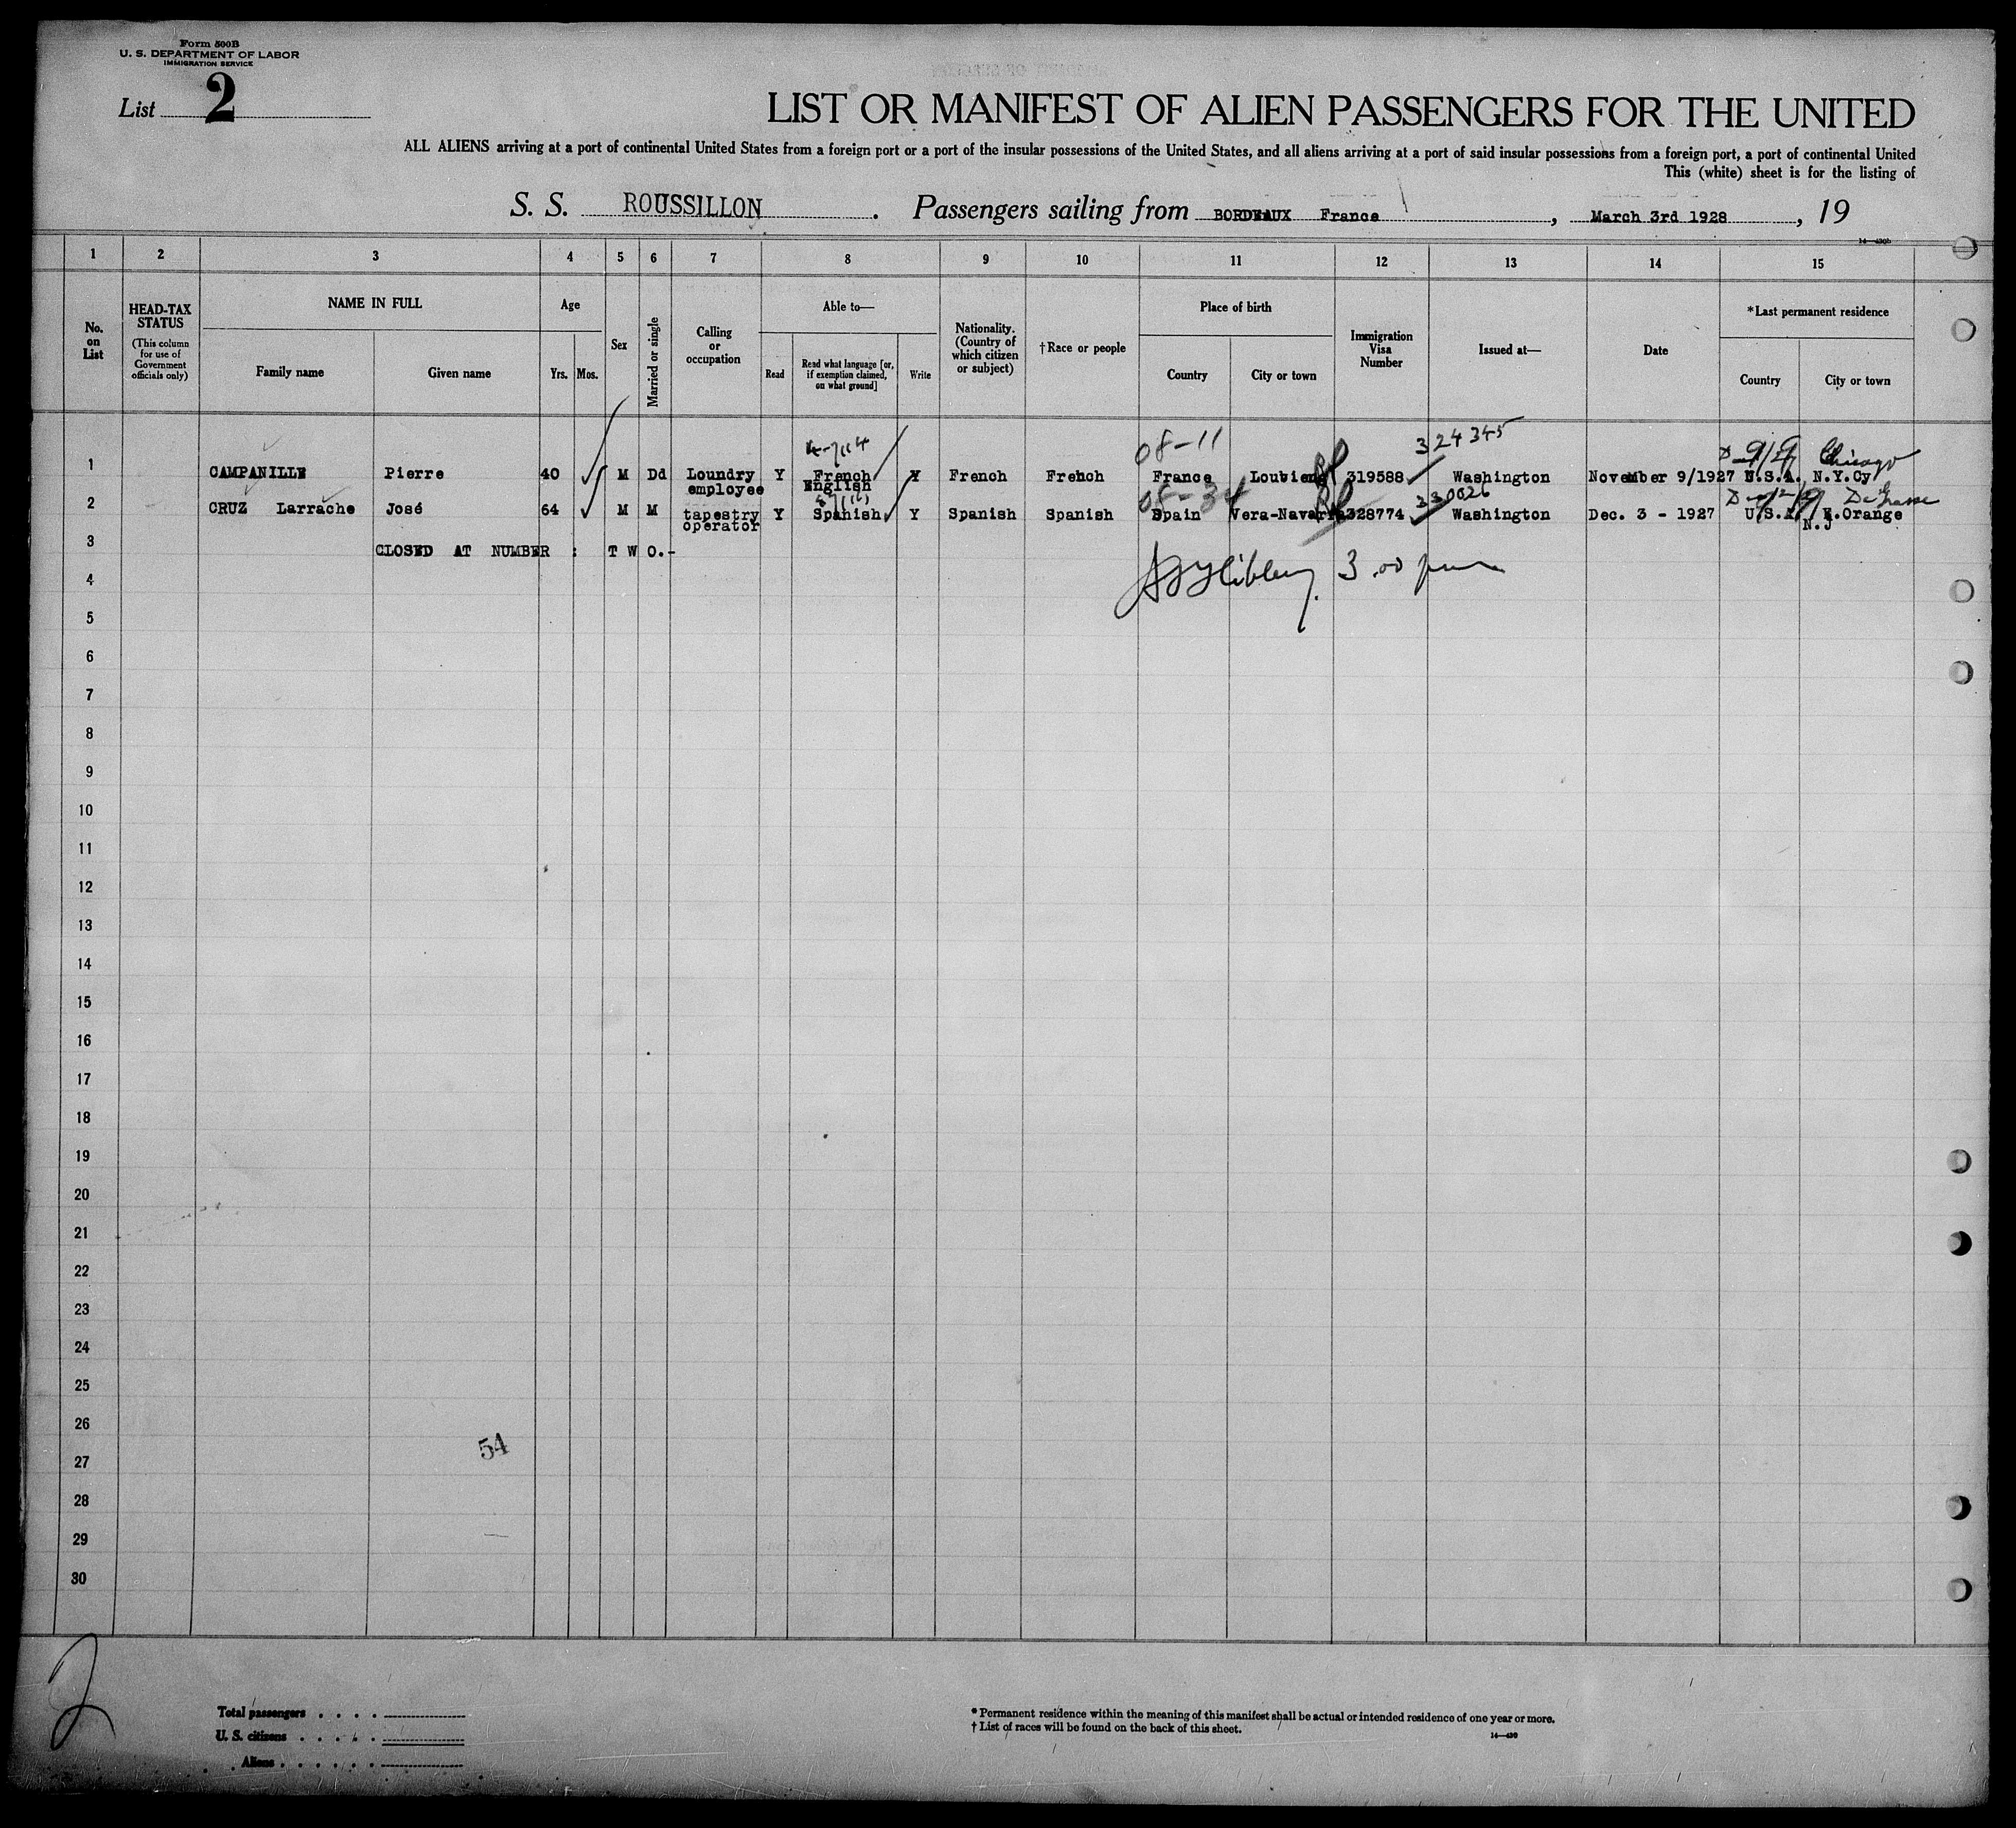 Form 500B
U. S. DEPARTMENT OF LABOR
IMMIGRATION SERVICE
List 2
LIST OR MANIFEST OF ALIEN PASSENGERS FOR THE UNITED
ALL ALIENS arriving at a port of continental United States from a foreign port or a port of the insular possessions of the United States, and all aliens arriving at a port of said insular possessions from a foreign port, a port of continental United
This (white) sheet is for the listing of
S. S. ROUSSILLON . Passengers sailing from BORDEAUX France , March 3rd 1928 , 19
1 2 3 4 5 6 7 8 9 10 11 12 13 14 15
No. on List
HEAD-TAX STATUS
(This column for use of Government officials only)
NAME IN FULL
Family name Given name
Age
Yrs. Mos.
Sex
Married or single
Calling or occupation
Able to—
Read Read what language [or, if exemption claimed, on what ground] Write
Nationality. (Country of which citizen or subject)
†Race or people
Place of birth
Country City or town
Immigration Visa Number
Issued at—
Date
*Last permanent residence
Country City or town
08-11 324345 Chicago
1 CAMPANILLE Pierre 40 M Dd Loundry employee Y French English Y French French France 319588 Washington November 9/1927 U.S.A. N.Y.Cy
08-34 330026 De Grasse
2 CRUZ Larrache José 64 M M tapestry operator Y Spanish Y Spanish Spanish Spain 328774 Washington Dec. 3 - 1927 U.S.A. E.Orange N.J
3 CLOSED AT NUMBER : T W O.-
4 3.00 pm
5
6
7
8
9
10
11
12
13
14
15
16
17
18
19
20
21
22
23
24
25
26
54
27
28
29
30
2
Total passengers
U. S. citizens
Aliens
* Permanent residence within the meaning of this manifest shall be actual or intended residence of one year or more.
† List of races will be found on the back of this sheet.
14—430